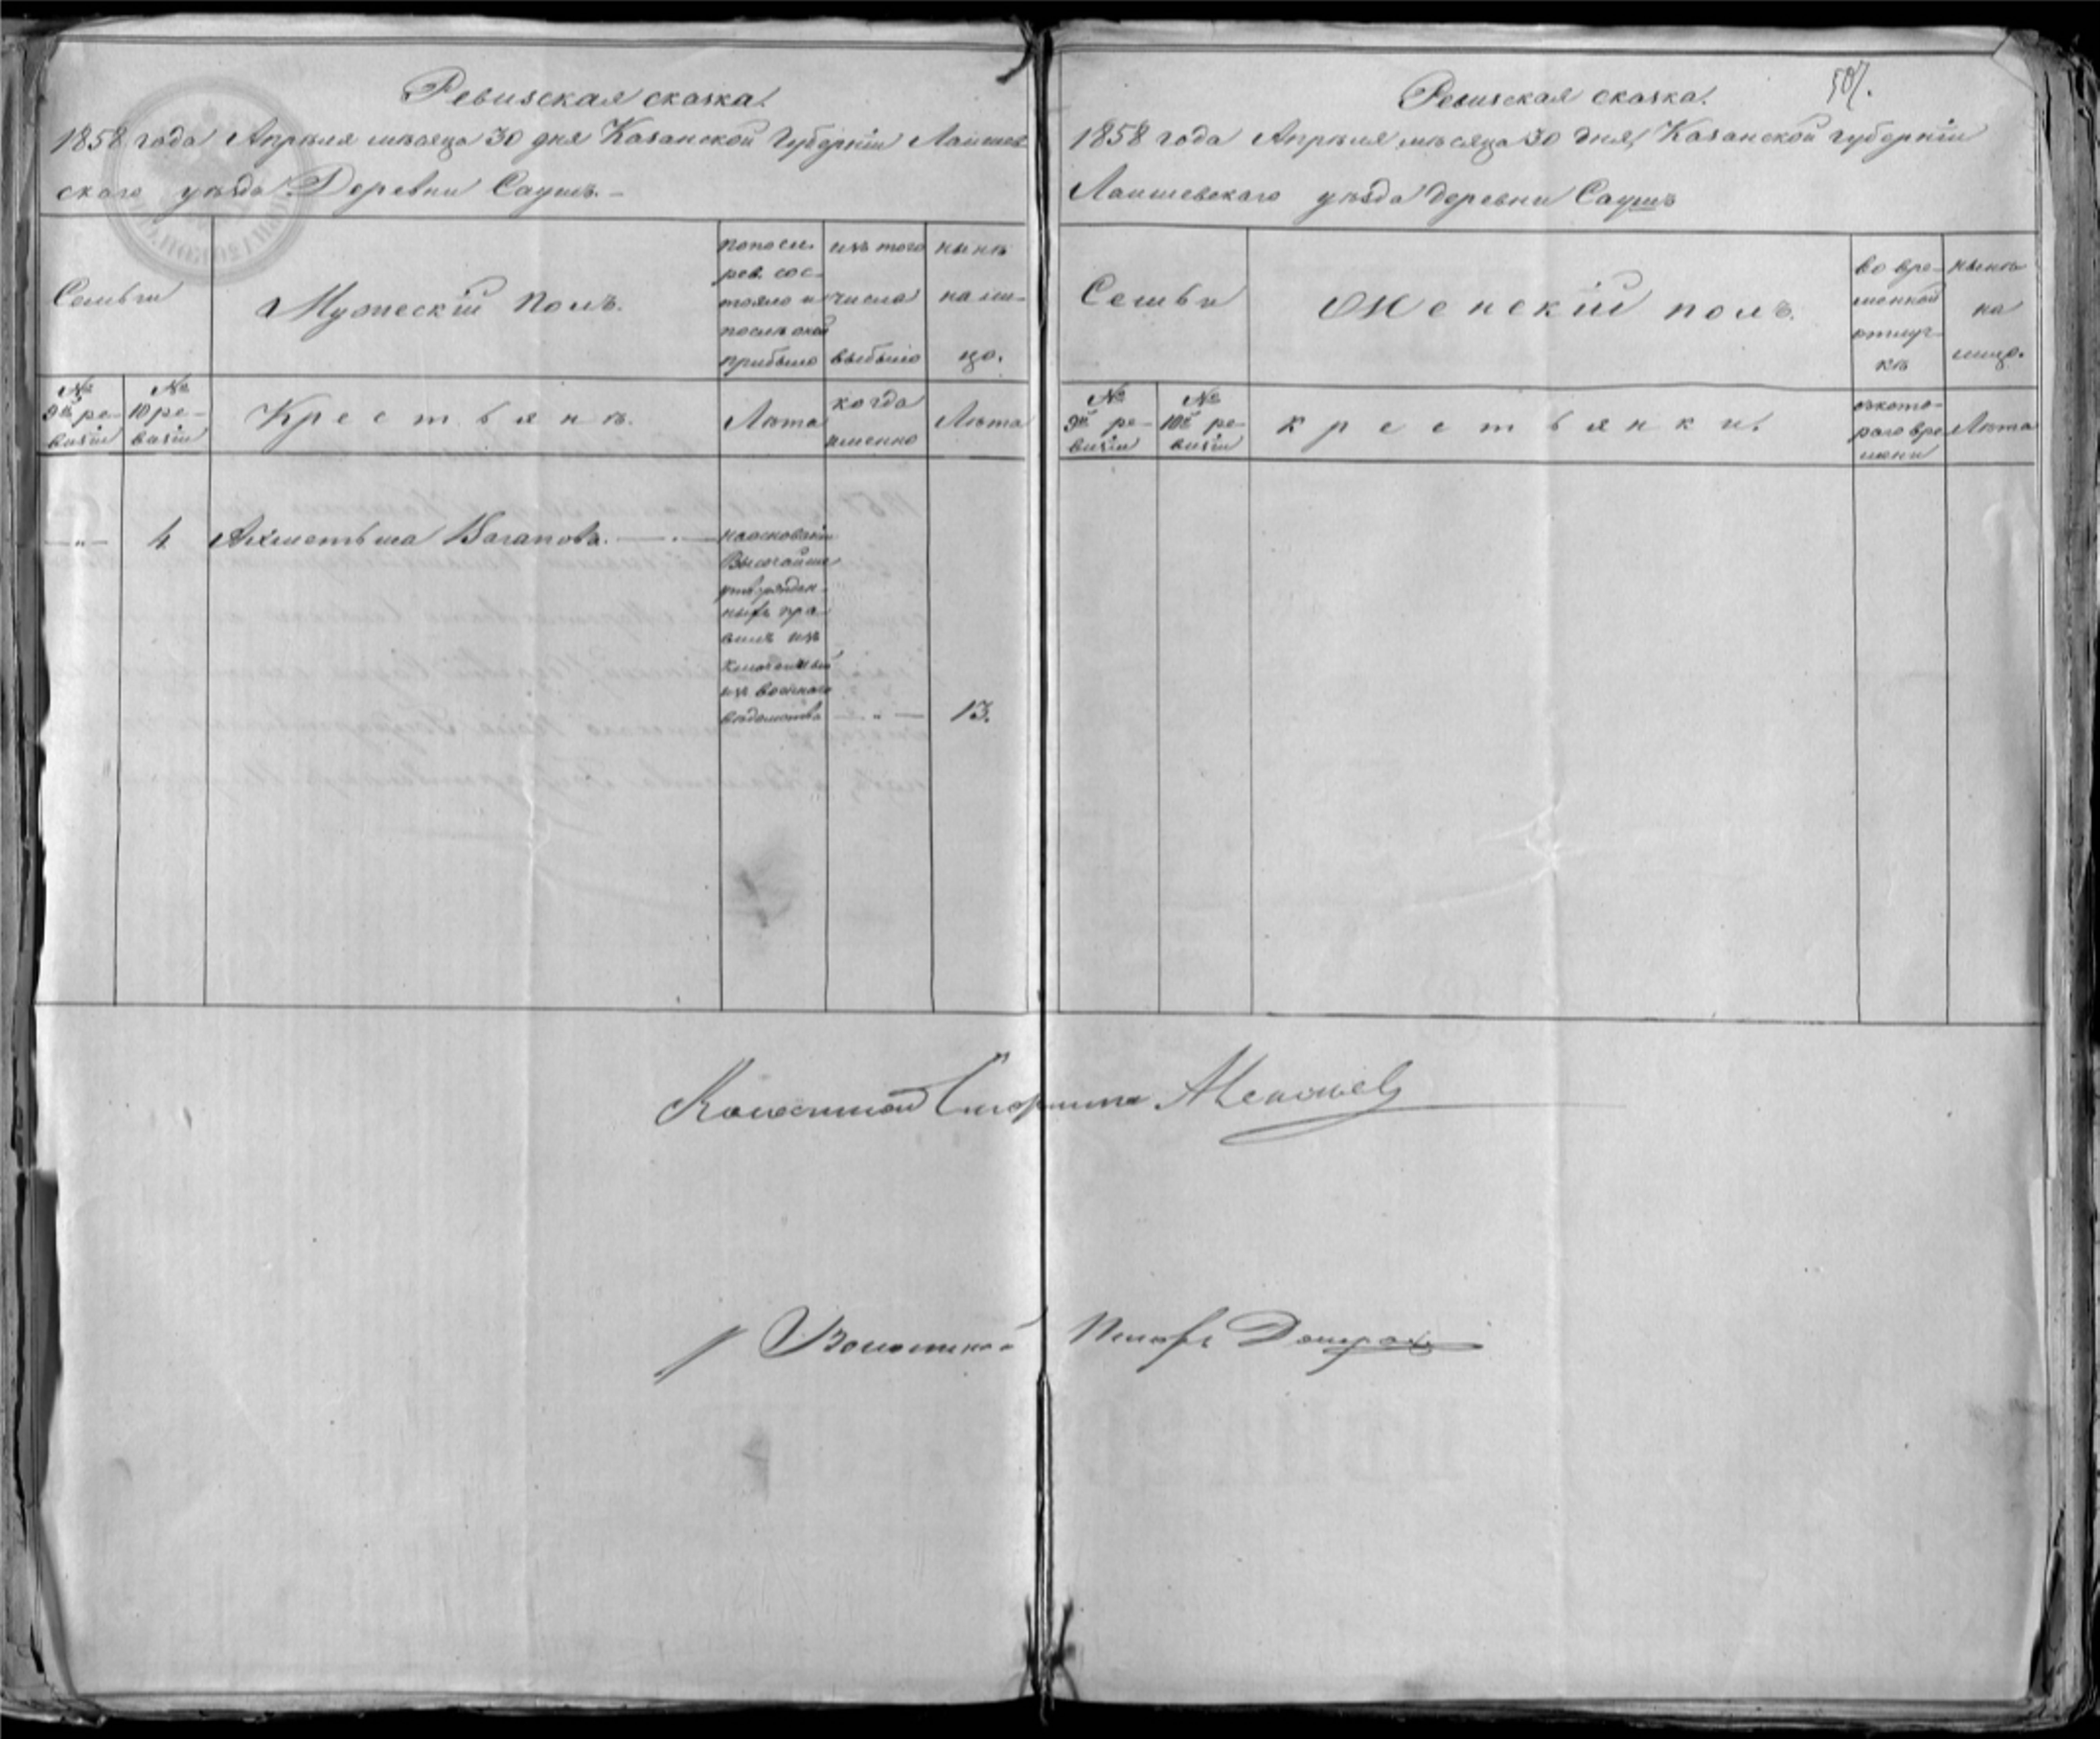 Ревизская сказка.
1858 года Апрѣля мѣсяца 30 дня Казанской Губерніи Лаишев
скаго уѣзда Деревни Саушъ. –
Семьи
Мужескій Полъ.
по послѣ.
рев. сос-
тояло и
послѣ оной
прибыло
изъ того
числа
выбыло
нынѣ
на ли-
цо.
№ 9й ре-
визіи
№ 10 ре-
визіи
Крестьянѣ.
Лѣта
когда
именно
Лѣта
— „ —
4
Ахметьша Вагаповъ.
на основаніи
Высочайше
утвержден-
ныхъ пра-
вилъ из
ключенный
изъ военнаго
вѣдомства
— „ —
13.
Ревизская сказка.
507.
1858 года Апрѣля мѣсяца 30 дня, Казанской губерніи
Лаишевскаго уѣзда деревни Саушъ
Семьи
Женскій полъ.
во вре-
менной
отлуч-
кѣ
нынѣ
на
лицо.
№ 9й ре-
визіи
№ 10й ре-
визіи
крестьянки.
съ кото-
раго вре
мени
Лѣта
Волостной Старшина
Волостной Писарь